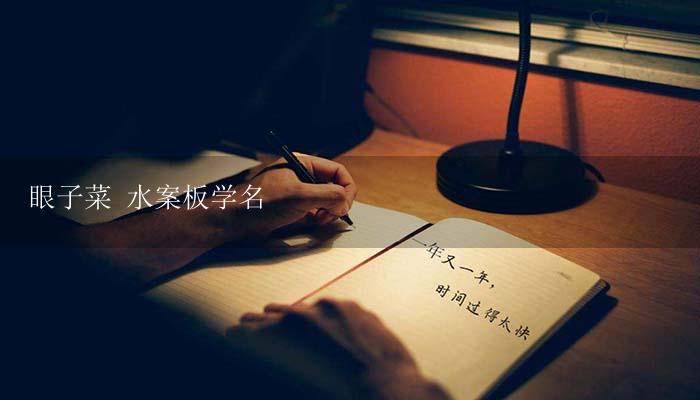 眼子菜 水案板学名
一年又一年，
时间过得太快